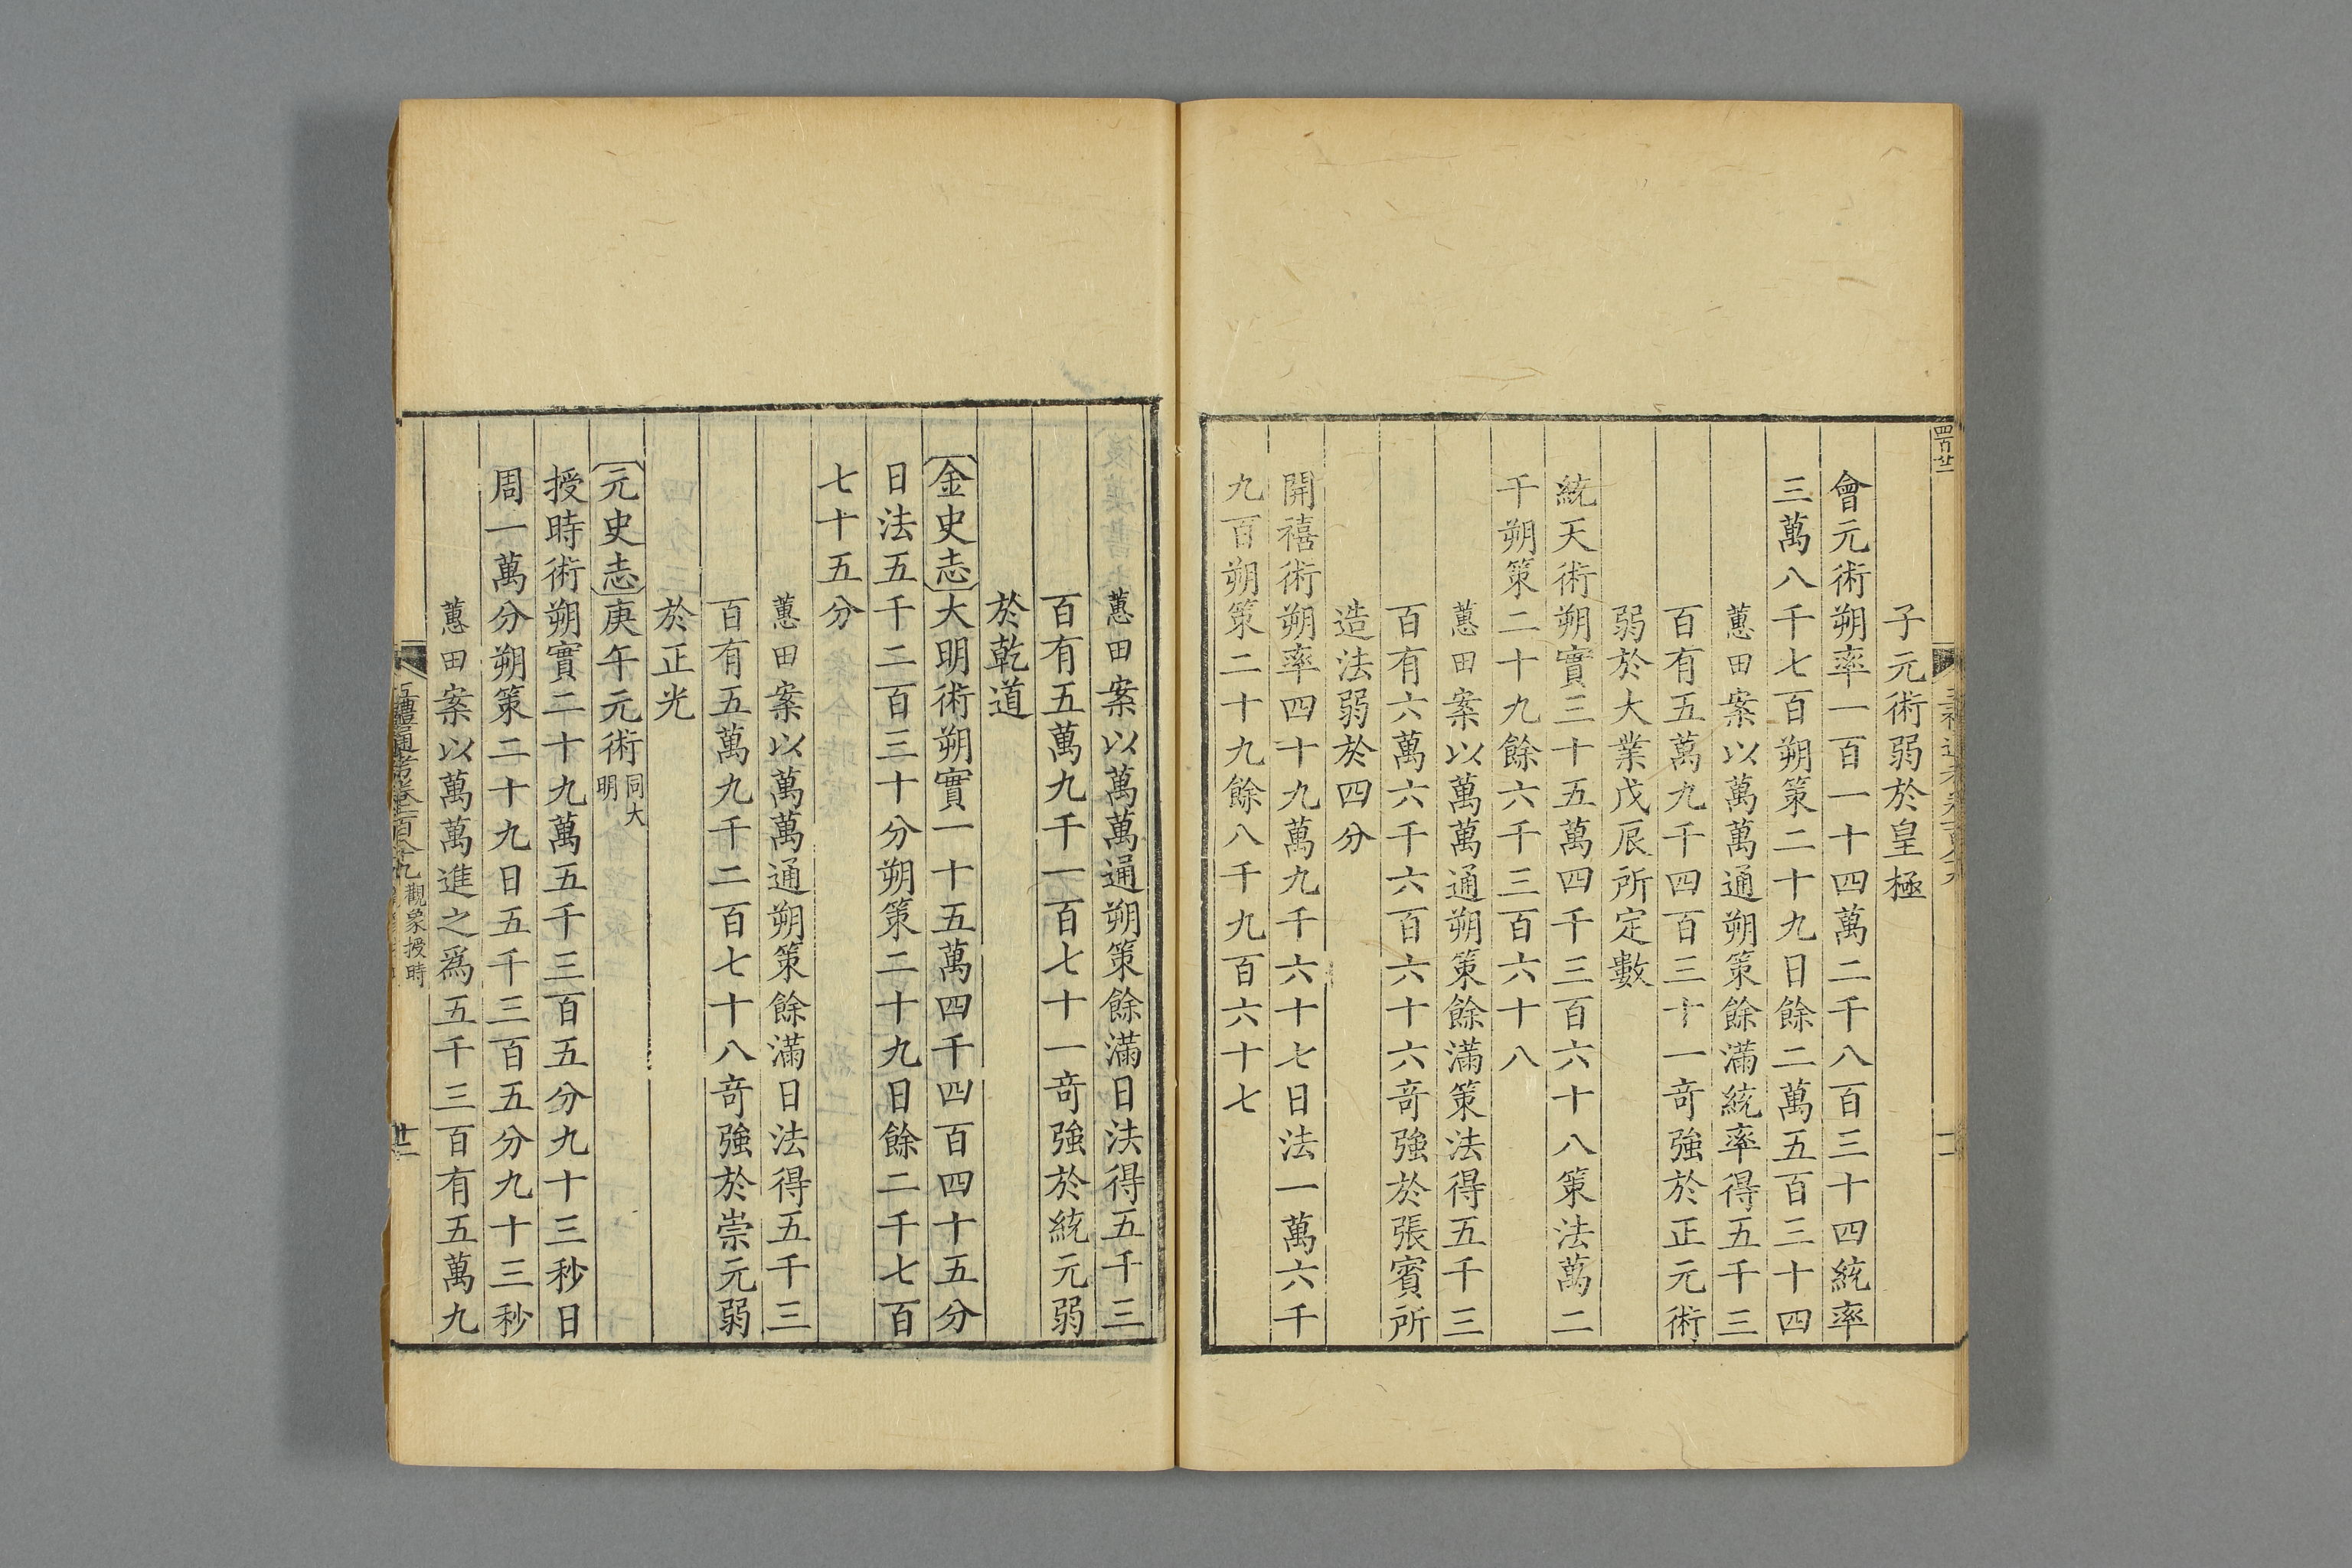 子元術弱於皇極
會元術朔率一百一十四萬二千八百三十四統率
三萬八千七百朔策二十九日餘二萬五百三十四
蕙田案以萬萬通朔策餘滿統率得五千三
百有五萬九千四百三十一竒強於正元術
弱於大業戊辰所定數
統天術朔實三十五萬四千三百六十八策法萬二
千朔策二十九餘六千三百六十八
蕙田案以萬萬通朔策餘滿策法得五千三
百有六萬六千六百六十六竒強於張賔所
造法弱於四分
開禧術朔率四十九萬九千六十七日法一萬六千
九百朔策二十九餘八千九百六十七
蕙田案以萬萬通朔策餘滿日法得五千三
百有五萬九千一百七十一竒強於統元弱
於乾道
金史志大明術朔實一十五萬四千四百四十五分
日法五千二百三十分朔策二十九日餘二千七百
七十五分
蕙田案以萬萬通朔策餘滿日法得五千三
百有五萬九千二百七十八竒強於崇元弱
於正光
元史志庚午元術同大明
授時術朔實二十九萬五千三百五分九十三秒日
周一萬分朔策二十九日五千三百五分九十三秒
蕙田案以萬萬進之爲五千三百有五萬九
五禮通考卷一百八十九 觀象授時